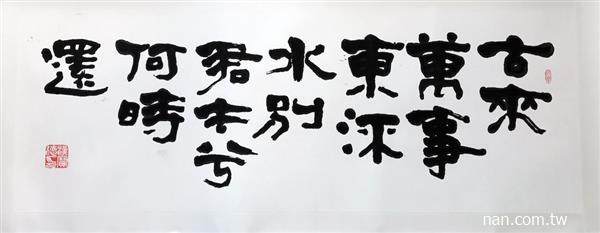 古來
萬事
東流
水別
君去兮
何時
還
nan.com.tw